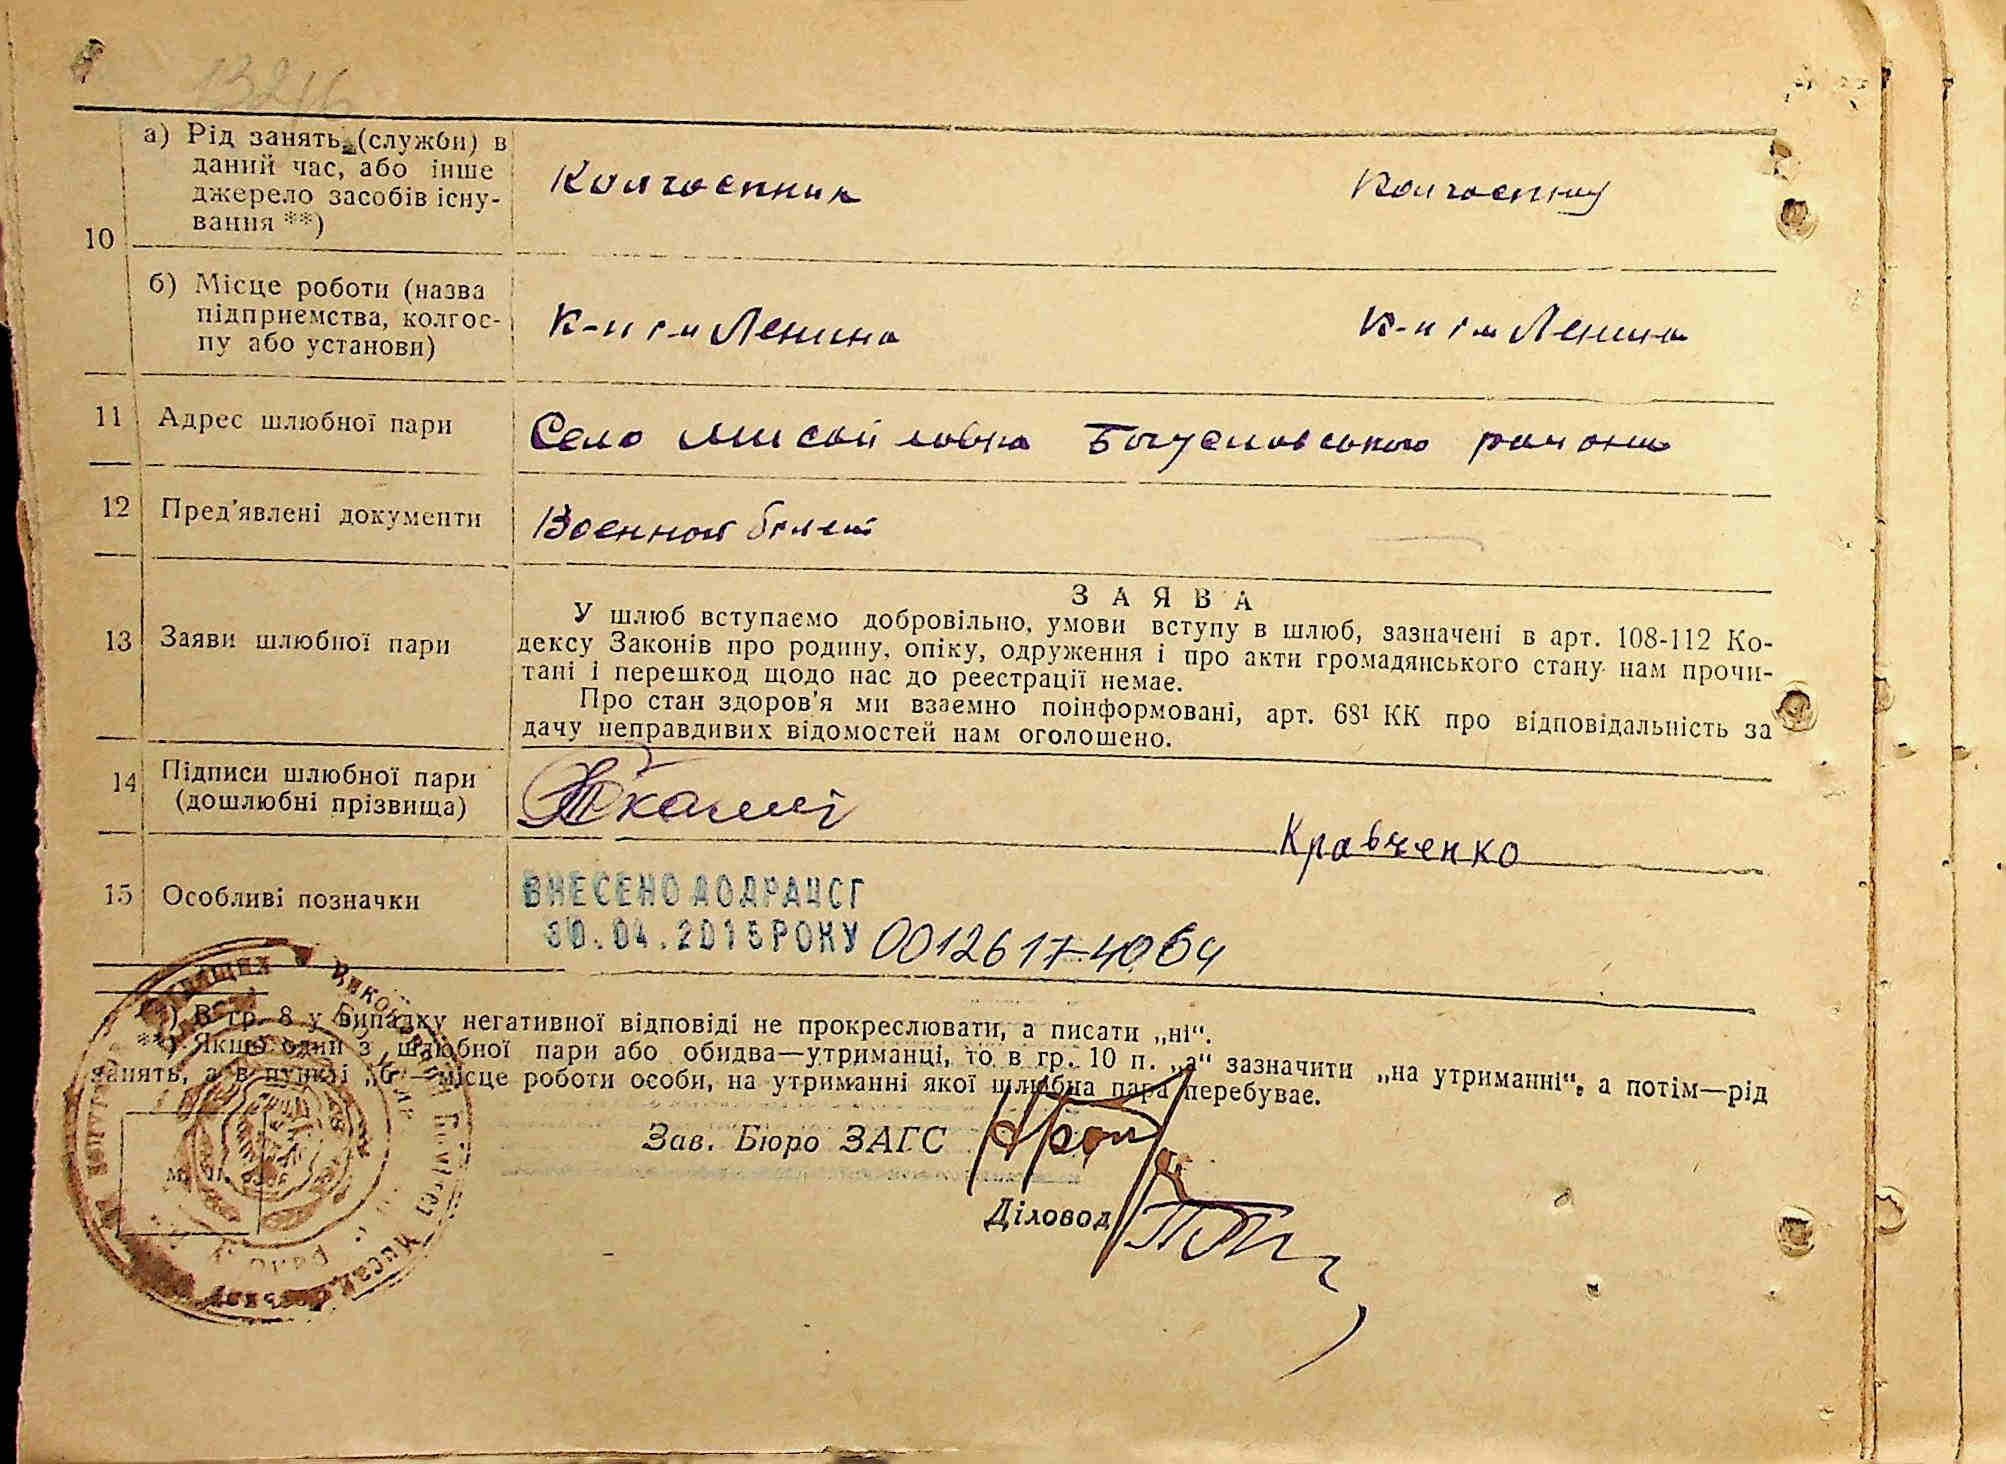 а) Рід занять (служби) в
даний час, або інше
джерело засобів існу-
вання **)
Колгоспник Колгоспниц
10
б) Місце роботи (назва
підприємства, колгос-
пу або установи)
К-п і-м Ленина К-п і-м Ленина
11 Адрес шлюбної пари
Село Мисайловка Богуславського району
12 Пред'явлені документи
Военной білет
ЗАЯВА
13 Заяви шлюбної пари
У шлюб вступаємо добровільно, умови вступу в шлюб, зазначені в арт. 108-112 Ко-
дексу Законів про родину, опіку, одруження і про акти громадянського стану нам прочи-
тані і перешкод щодо нас до реєстрації немає.
Про стан здоров'я ми взаємно поінформовані, арт. 68¹ КК про відповідальність за
дачу неправдивих відомостей нам оголошено.
14 Підписи шлюбної пари
(дошлюбні прізвища)
Кравченко
15 Особливі позначки
ВНЕСЕНО ДО ДРАЦСГ
30.04.2015 РОКУ 00126174064
*) В гр. 8 у випадку негативної відповіді не прокреслювати, а писати „ні“.
**) Якщо один з шлюбної пари або обидва—утриманці, то в гр. 10 п. „а“ зазначити „на утриманні“, а потім—рід
занять, а в пункті „б“—місце роботи особи, на утриманні якої шлюбна пара перебуває.
Зав. Бюро ЗАГС
Діловод